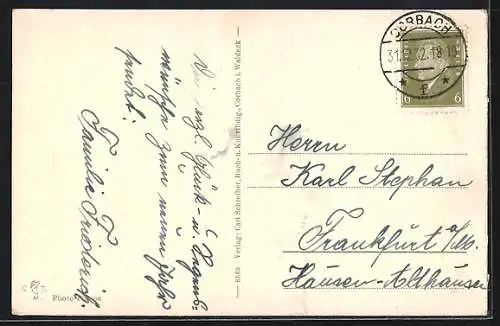 Die herzl. Glück- u. Segens-
wünsche zum neuen Jahr
sendet
Familie Friderich.
8464 Verlag: Carl Schreiber, Buch- u. Kunsthdlg., Corbach i. Waldeck
CORBACH
31.12.32.18-19
* f *
6 6
Herrn
Karl Stephan
Frankfurt a/M.
Hausen-Althäuser
Photo